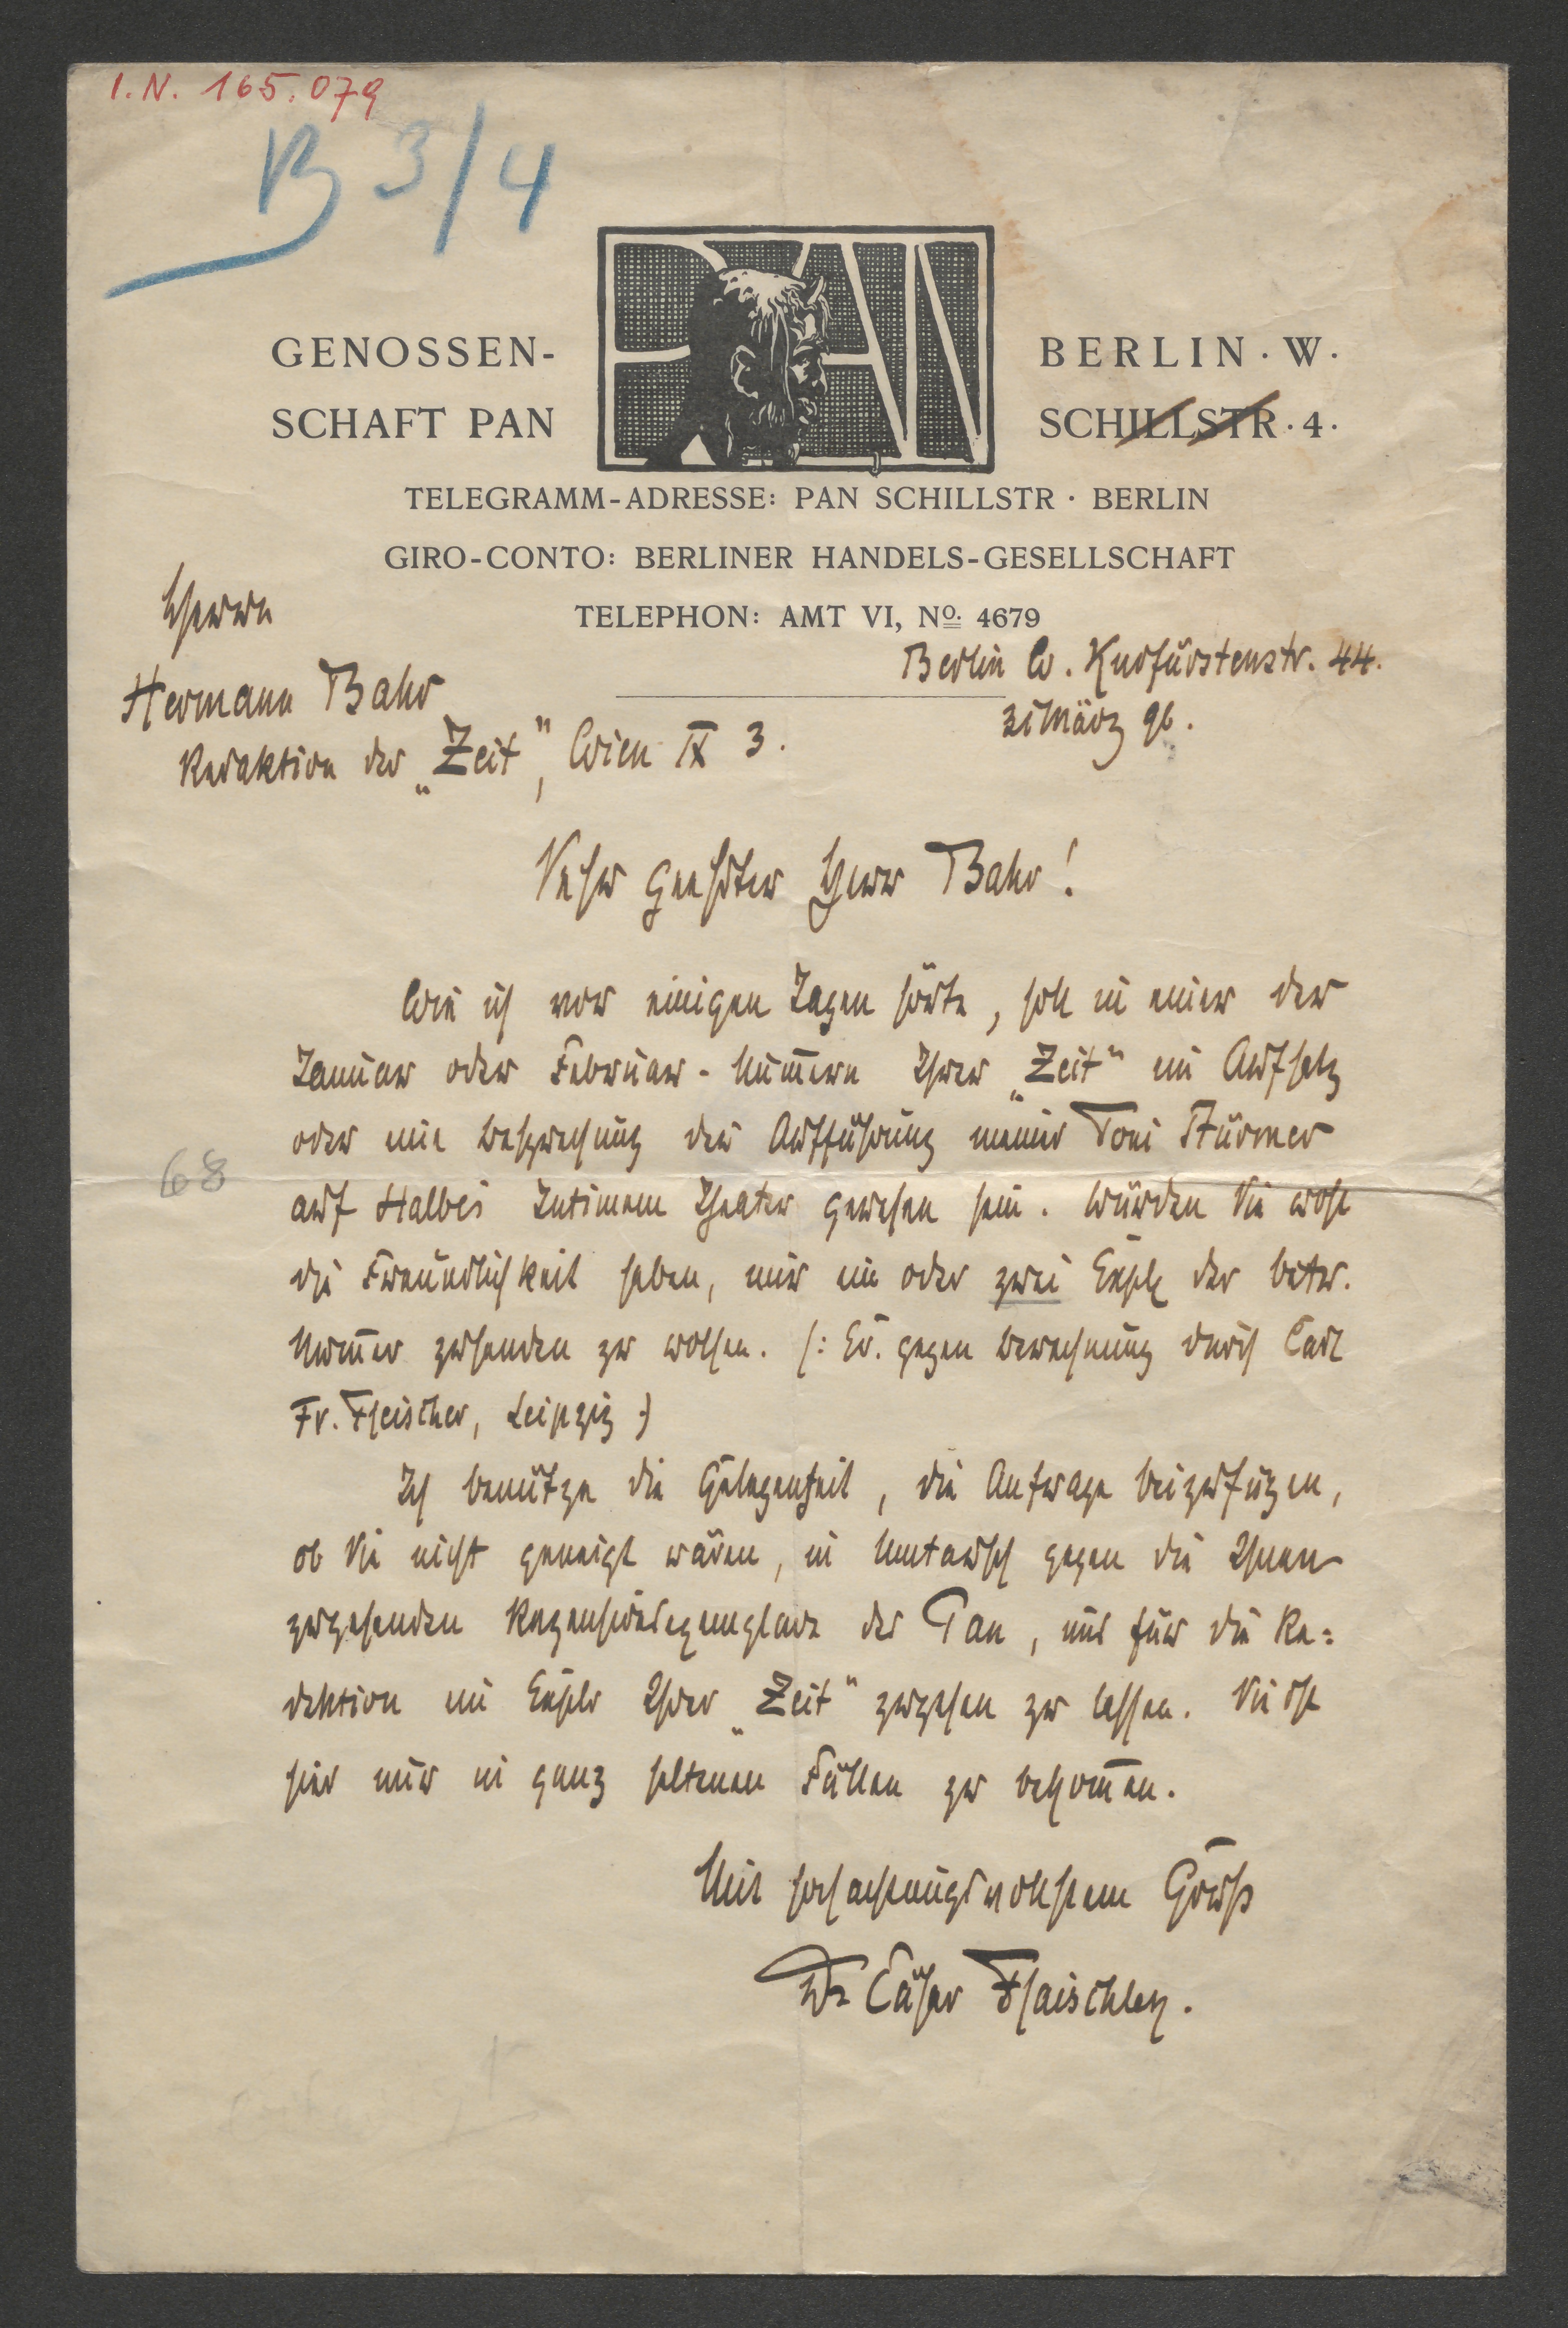 I. N. 165.079
B 3/4
GENOSSEN-
SCHAFT PAN
PAN
BERLIN · W ·
SCHILLSTR · 4 ·
TELEGRAMM-ADRESSE: PAN SCHILLSTR · BERLIN
GIRO-CONTO: BERLINER HANDELS-GESELLSCHAFT
TELEPHON: AMT VI, No. 4679
Herrn
Berlin W. Kurfürstenstr. 44.
Hermann Bahr
März 96.
Redaktion der „Zeit", Wien IX 3.
Sehr geehrter Herr Bahr!
Wie ich vor einigen Tagen hörte, soll in einer der
Januar oder Februar-Nummern Ihrer „Zeit" ein Aufsatz
oder eine Besprechung der Aufführung meines Toni Stürmer
68
auf Halbes Intimem Theater gewesen sein. Würden Sie wohl
die Freundlichkeit haben, mir ein oder zwei Expl der betr.
Nummer zusenden zu wollen. (: Ev. gegen Berechnung durch Carl
Fr. Fleischer, Leipzig :)
Ich benütze die Gelegenheit, die Anfrage beizufügen,
ob Sie nicht geneigt wären, in Umtausch gegen die Ihnen
zugehenden Rezensionsexemplare des Pan, uns für die Re=
daktion ein Explr Ihrer „Zeit" zugehen zu lassen. Sie ist
hier nur in ganz seltenen Fällen zu bekommen.
Mit hochachtungsvollstem Gruß
Dr Cäsar Flaischlen.